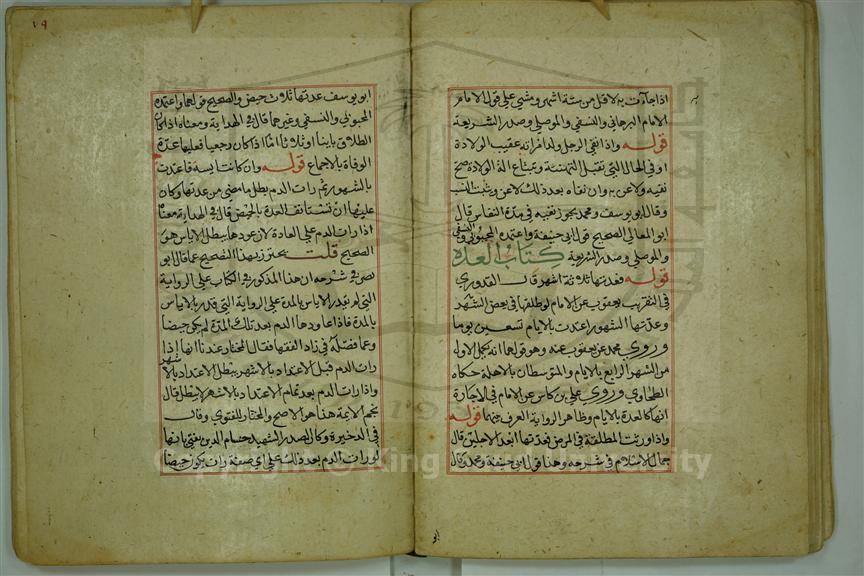 اذا جاءت به لاقل من ستة اشهر ومشى على قول الامام
الامام البرهاني والنسفي والموصلي وصدر الشريعة
قوله واذا نفى الرجل ولد امراته عقيب الولادة
او في الحال التي تقبل التهنئة وتبتاع الة الولادة صح
نفيه ولاعن به وان نفاه بعد ذلك لاعن ويثبت النسب
وقال ابو يوسف ومحمد يجوز نفيه في مدة النفاس قال
ابو المعالي الصحيح قول ابي حنيفة واعتمده المحبوبي والنسفي
والموصلي وصدر الشريعة كتاب العدة
قوله فعدتها ثلاثة اشهر قال القدوري
في التقريب يعقوب عن الامام لو طلقها في بعض الشهر
وعدتها الشهور اعتدت بالايام تسعين يوما
وروى محمد عن يعقوب عنه وهو قولهما انه يكمل الاول
من الشهر الرابع بالايام والمتوسطان بالاهلة حكاه
الطحاوي وروى علي بن كاس عن الامام في الاجارة
انها كالعدة بالايام وظاهر الرواية الفرق بينهما قوله
واذا ورثت المطلقة في المرض فعدتها ابعد الاجلين قال
جمال الاسلام في شرحه وهذا قول ابي حنيفة ومحمد وقال
ابو
١٩
ابو يوسف عدتها ثلاث حيض والصحيح قولهما واعتمده
المحبوبي والنسفي وغيرهما قال في الهداية ومعناه اذا كان
الطلاق باينا او ثلاثا اما اذا كان رجعيا فعليها عدة
الوفاة بالاجماع قوله وان كانت ايسة فاعتدت
بالشهور ثم رات الدم بطل ما مضى من عدتها وكان
عليها ان تستانف العدة بالحيض قال في الهداية معناه
اذا رات الدم على العادة لان عودها يبطل الاياس هو
الصحيح قلت يحترز بهذا التصحيح عما قال ابو
نصر في شرحه ان هذا المذكور في الكتاب على الرواية
التي لم يقدر الاياس بالمدة على الرواية التي قدر بالاياس
بالمدة فاذا عاودها الدم بعد تلك المدة لم يكن حيضا
وعما فصله في زاد الفقها فقال المختار عندنا انها اذا
رات الدم قبل الاعتداد بالاشهر يبطل الاعتداد بالاشهر
واذا رات الدم بعد تمام الاعتداد بالاشهر لا يبطل قال
نجم الايمة هذا هو الاصح والمختار للفتوى وقال
في الذخيرة وكان الصدر الشهيد حسام الدين يفتي بانها
لو رات الدم بعد ذلك على اي صفة رات يكون حيضا
Copyright © King Saud University